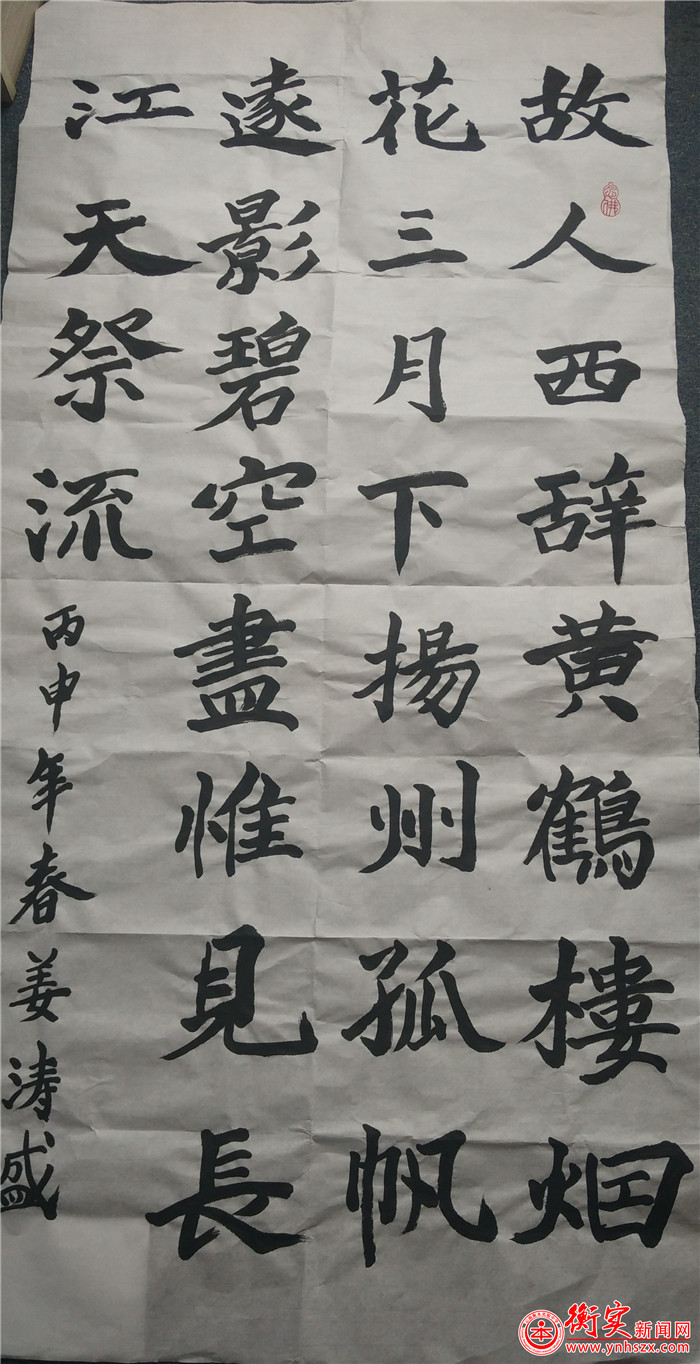 故人西辞黄鶴樓烟
花三月下揚州孤帆
遠影碧空盡惟見長
江天祭流
丙申年春姜涛盛
衡实新闻网
www.ynhszx.com